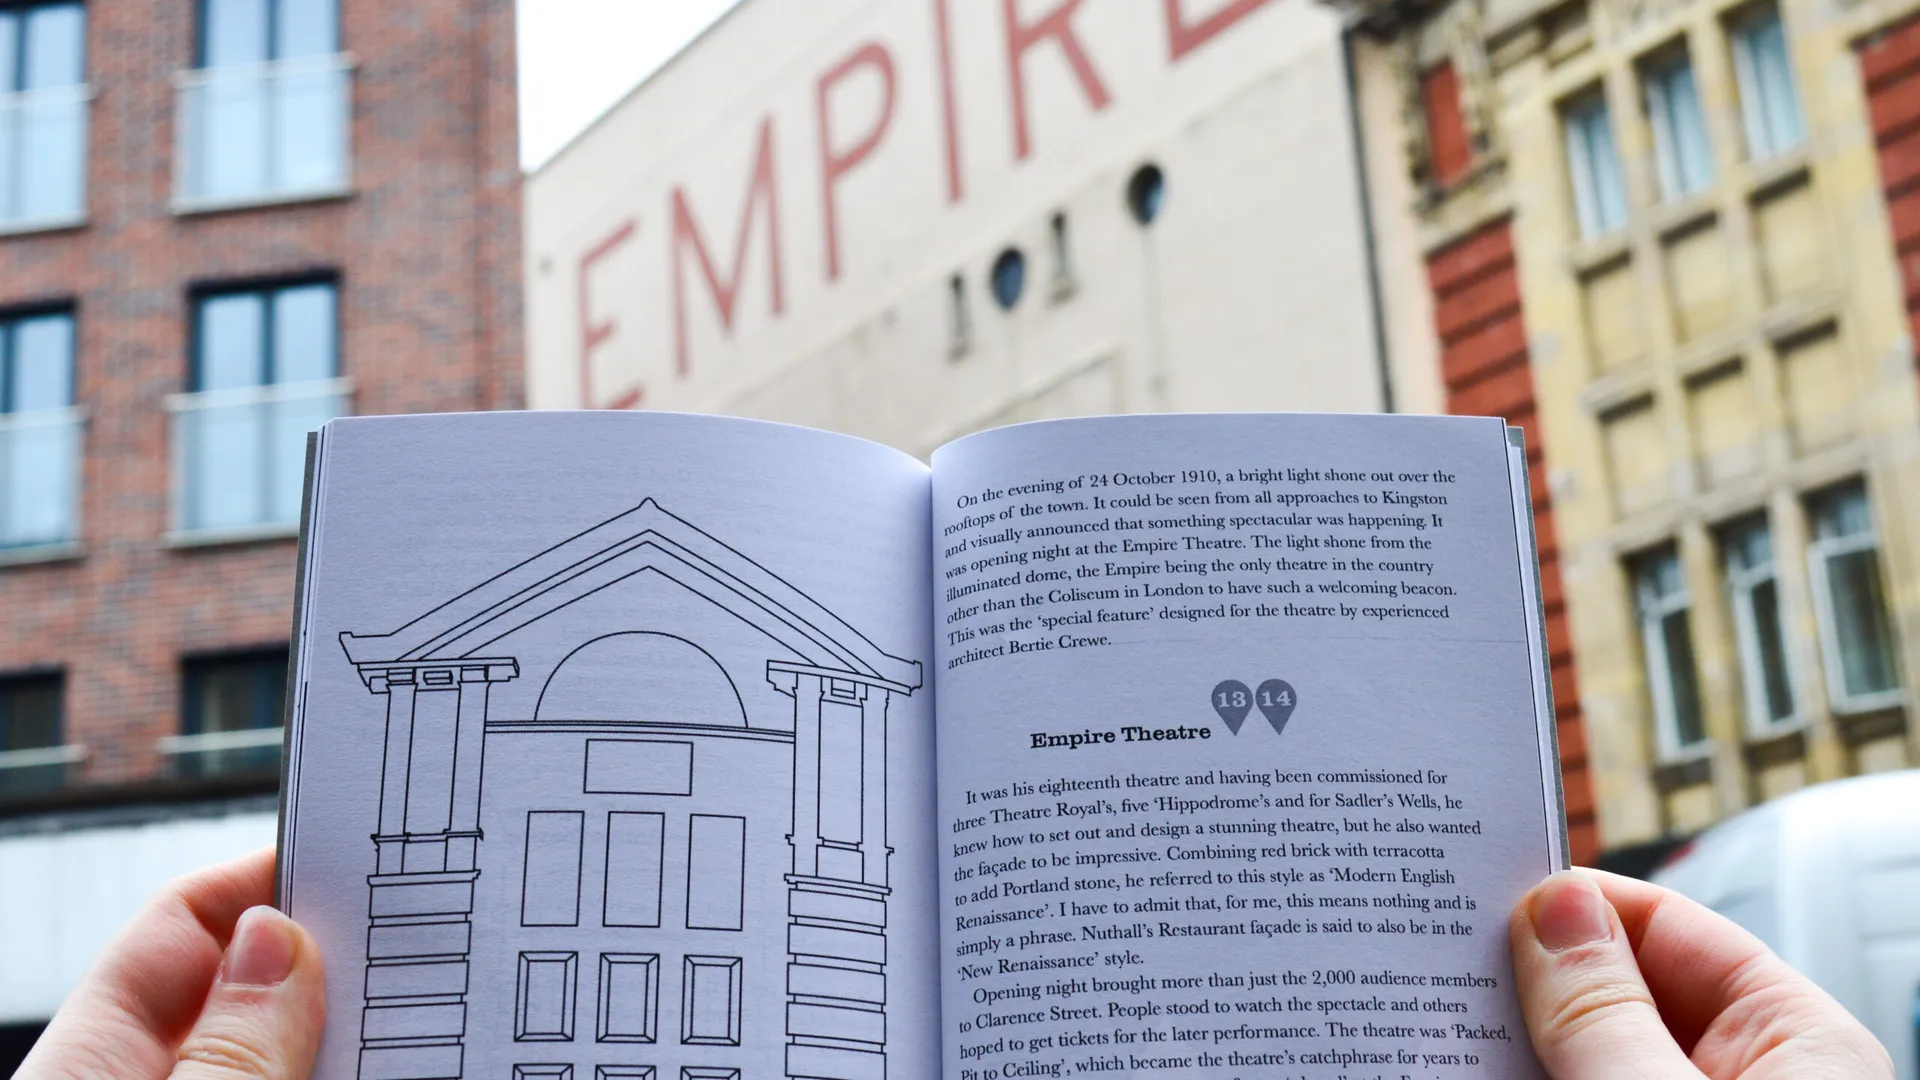 EMPIRE
On the evening of 24 October 1910, a bright light shone out over the
rooftops of the town. It could be seen from all approaches to Kingston
and visually announced that something spectacular was happening. It
was opening night at the Empire Theatre. The light shone from the
illuminated dome, the Empire being the only theatre in the country
other than the Coliseum in London to have such a welcoming beacon.
This was the ‘special feature’ designed for the theatre by experienced
architect Bertie Crewe.
13 14
Empire Theatre
It was his eighteenth theatre and having been commissioned for
three Theatre Royal’s, five ‘Hippodrome’s and for Sadler’s Wells, he
knew how to set out and design a stunning theatre, but he also wanted
the façade to be impressive. Combining red brick with terracotta
to add Portland stone, he referred to this style as ‘Modern English
Renaissance’. I have to admit that, for me, this means nothing and is
simply a phrase. Nuthall’s Restaurant façade is said to also be in the
‘New Renaissance’ style.
Opening night brought more than just the 2,000 audience members
to Clarence Street. People stood to watch the spectacle and others
hoped to get tickets for the later performance. The theatre was ‘Packed,
Pit to Ceiling’, which became the theatre’s catchphrase for years to